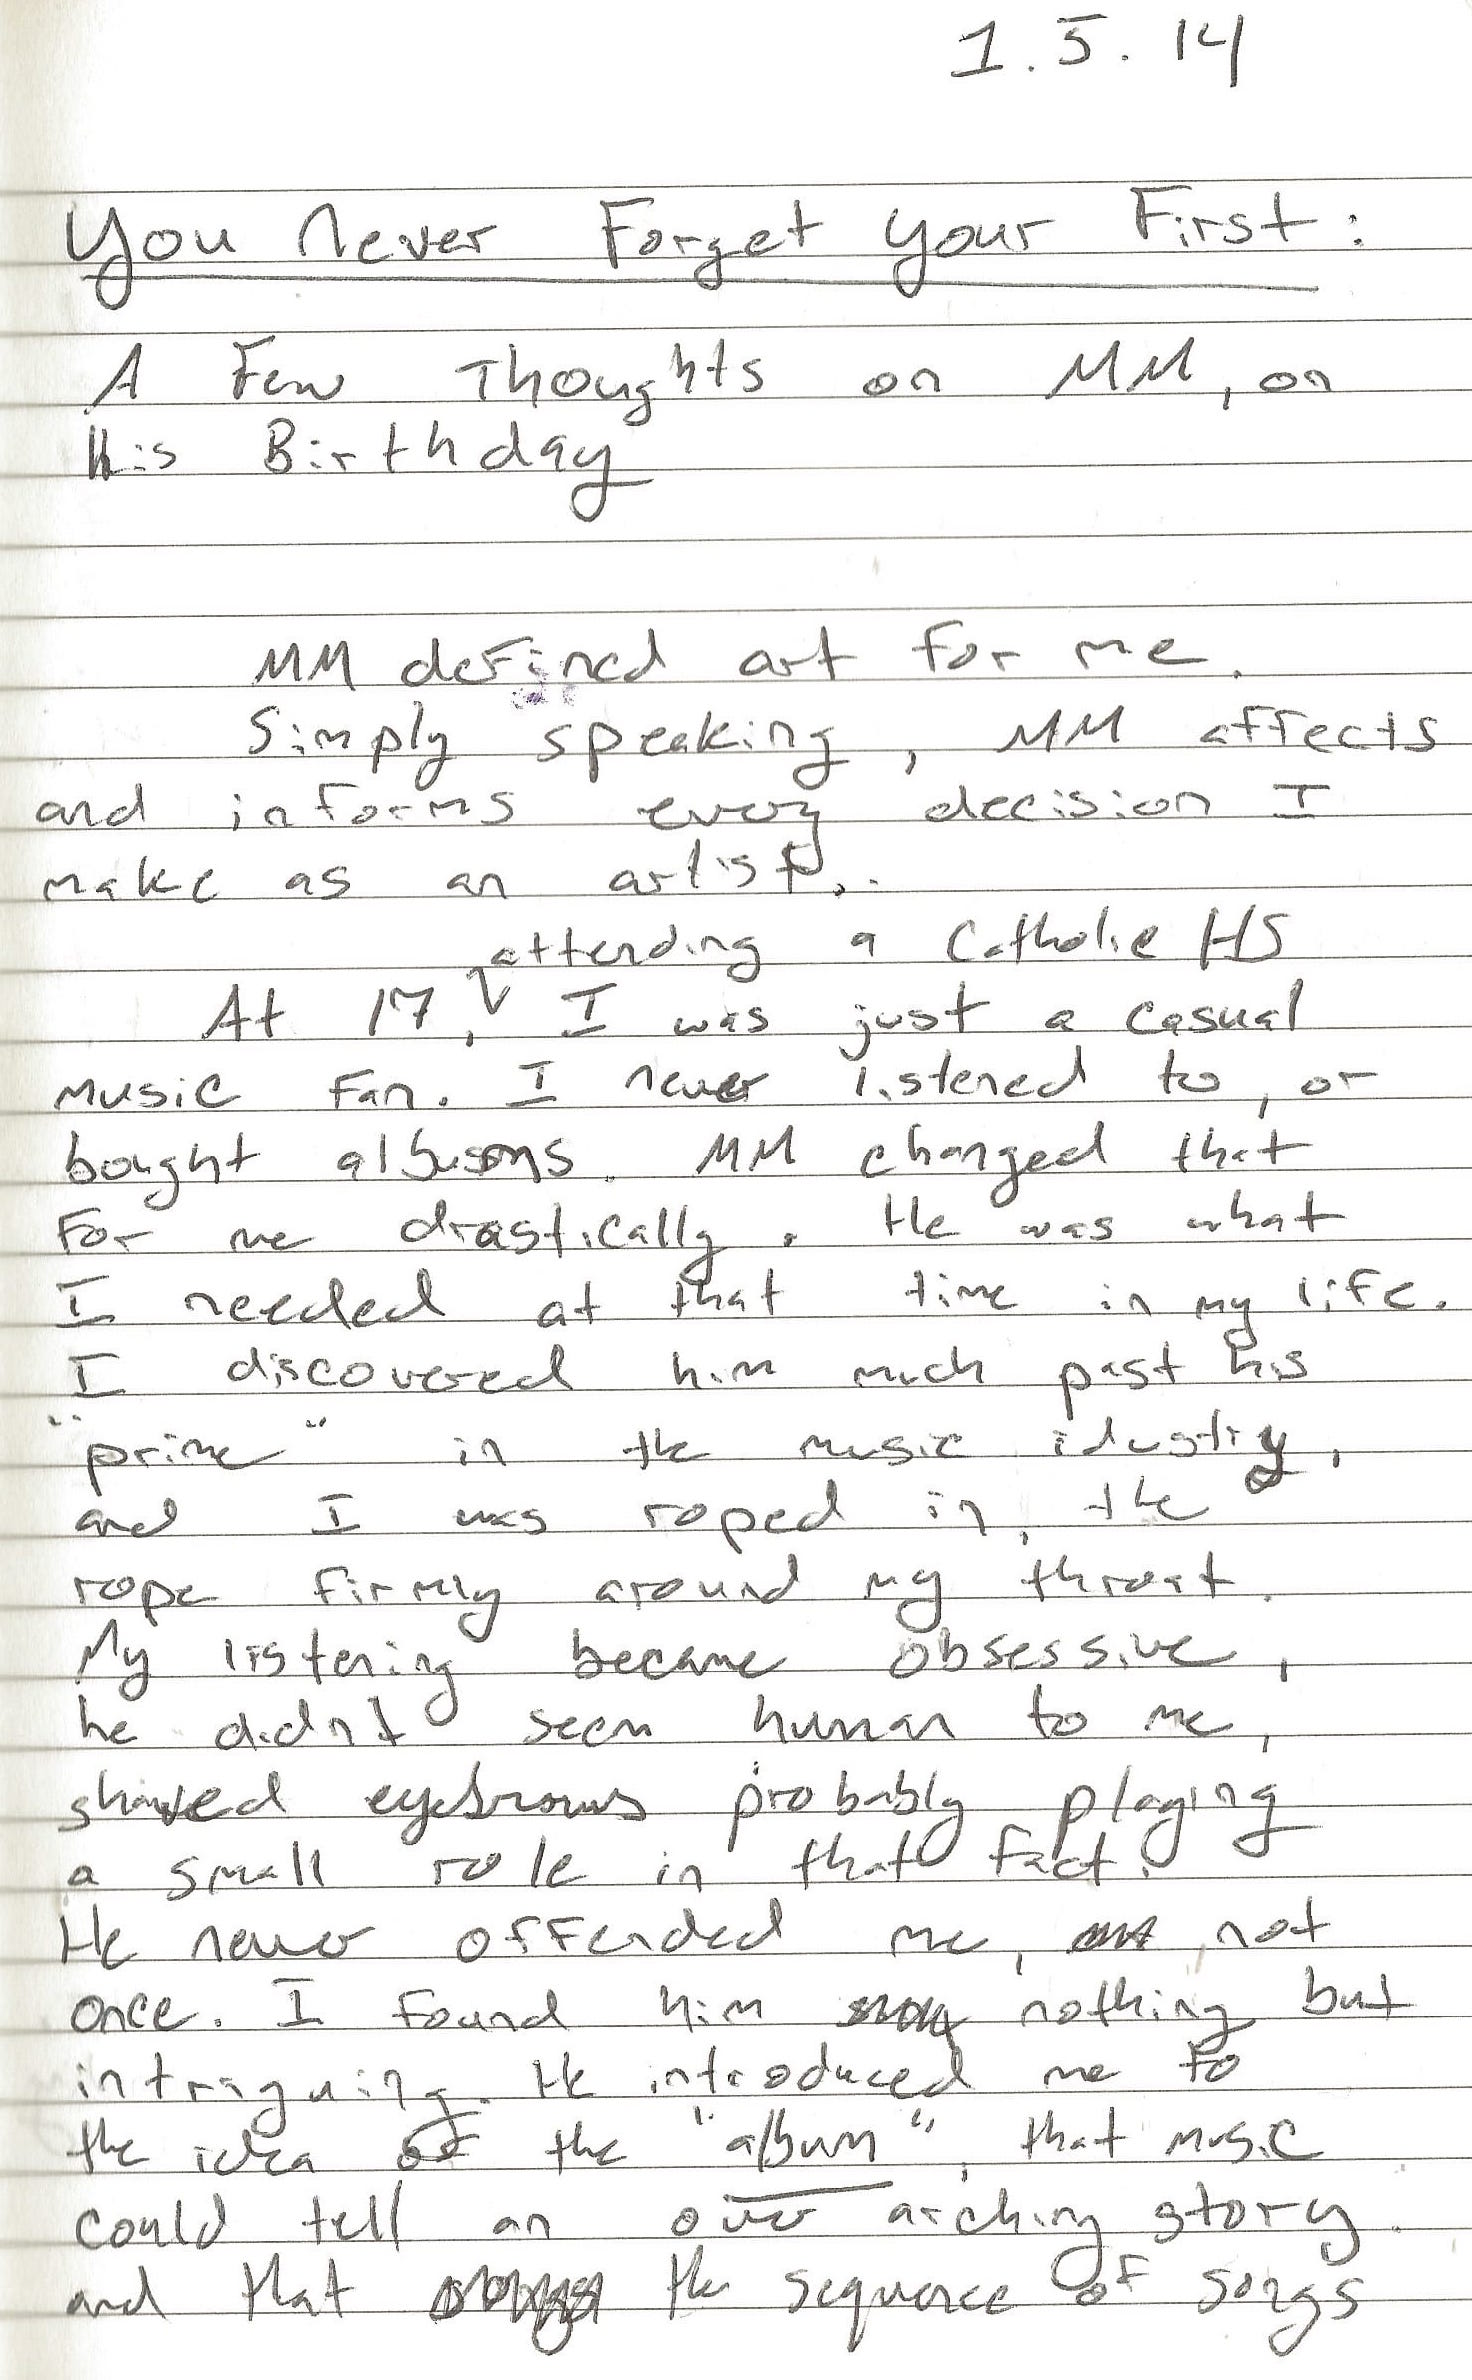 1.5.14
You Never Forget Your First:
A Few Thoughts on MM, on
His Birthday
MM defined art for me.
Simply speaking, MM affects
and informs every decision I
make as an artist..
attending a Catholic HS
At 17, I was just a casual
music fan. I never listened to, or
bought albums. MM changed that
for me drastically. He was what
I needed at that time in my life.
I discovered him much past his
"prime" in the music idustry,
and I was roped in, the
rope firmly around my throat.
My listening became obsessive,
he didnt seem human to me,
shaved eyebrows probably playing
a small role in that fact.
He never offended me, not
once. I found him nothing but
intriguing. He introduced me to
the idea of the "album", that music
could tell an over arching story.
and that the sequence of songs